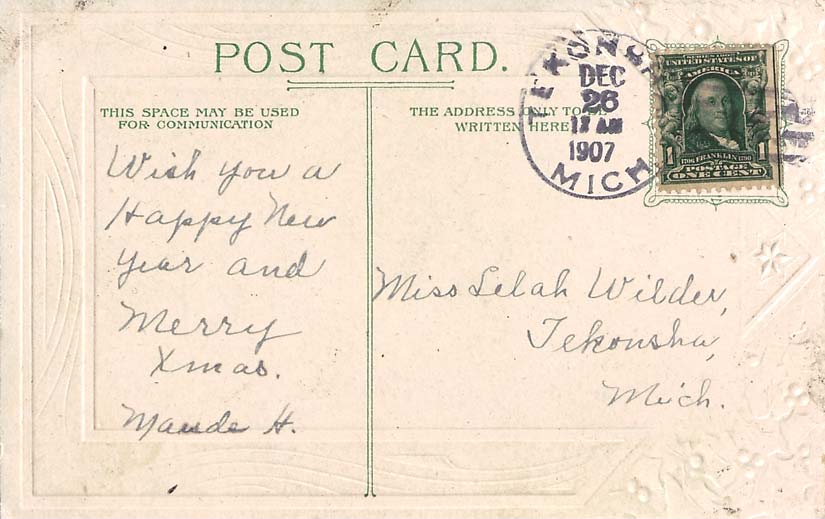 POST CARD.
THIS SPACE MAY BE USED
FOR COMMUNICATION
THE ADDRESS ONLY TO BE
WRITTEN HERE
TEKONSHA
DEC
26
1907
MICH
UNITED STATES OF
AMERICA
1 1
1706 FRANKLIN 1790
POSTAGE
ONE CENT
Wish you a
Happy New
Year and
Merry
Xmas.
Maude H.
Miss Lelah Wilder,
Tekonsha,
Mich.